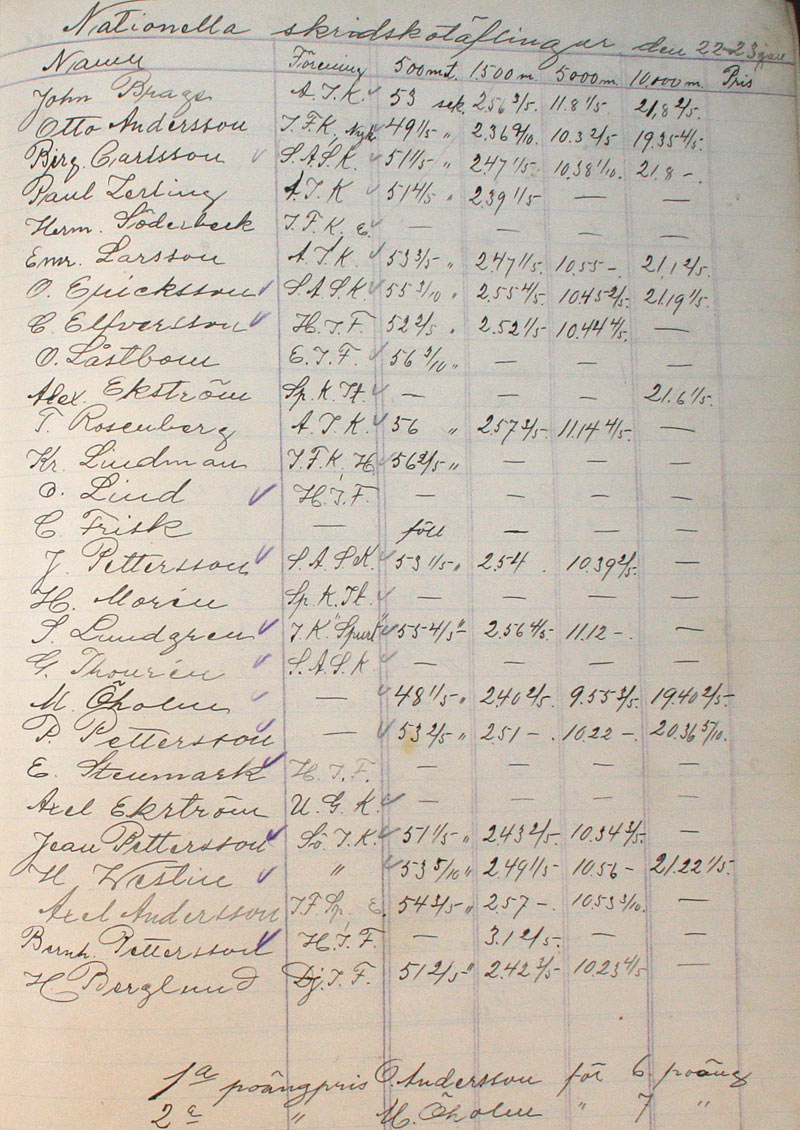 Nationella skridskotäflingar den 22-23 jan
Namn Förening 500 mt. 1,500 m. 5000 m. 10,000 m. Pris
John Brage A.I.K. 53 sek. 2.56 3/5. 11.8 1/5. 21,8 2/5.
Otto Andersson I.F.K. Nyk. 49 1/5 " 2.36 9/10. 10.3 2/5. 19.35 4/5.
Birg. Carlsson S.A.S.K. 51 1/5 " 2.47 1/5. 10.38 1/10. 21.8 -.
Paul Zerling A.I.K 51 4/5 " 2.39 1/5 — —
Herm. Söderbeck I.F.K. E. — — — —
Emr. Larsson A.I.K. 53 3/5 " 2.47 1/5. 10.55 -. 21,1 2/5.
O. Ericksson S.A.S.K. 55 2/10 " 2.55 4/5. 10.45 2/5. 21.19 1/5.
C. Elfversson H.I.F. 52 2/5 " 2.52 1/5 10.44 4/5. —
O. Låstbom E.I.F. 56 3/10 " — — —
Alex. Ekström Sp.K.It. — — — 21.6 1/5.
T. Rosenberg A.I.K. 56 " 2.57 2/5. 11.14 4/5. —
Kr. Lindman I.F.K. H. 56 2/5 " — — —
O. Lind H.I.F. — — — —
C. Frisk — föll — — —
J. Pettersson S.A.S.K. 53 1/5 " 2.54 . 10.39 2/5. —
H. Morén Sp.K.It. — — — —
S. Lundgren I.K. "Spurt" 55 4/5 " 2.56 4/5. 11.12 -. —
G. Thourén S.A.S.K — — — —
M. Öholm — 48 1/5 " 2.40 2/5. 9.55 3/5. 19.40 2/5.
P. Pettersson — 53 2/5 " 2.51 -. 10.22 -. 20.36 5/10.
E. Stenmark H.I.F. — — — —
Axel Ekström U.G.K. — — — —
Jean Pettersson Sö.I.K. 51 1/5 " 2.43 2/5. 10.34 3/5. —
H Westin " 53 5/10 " 2.49 1/5 10.56 - 21.22 1/5.
Axel Andersson I.F.Sp. E. 54 3/5 " 2.57 -. 10.53 3/10. —
Bernh. Pettersson H.I.F. — 3.1 2/5. — —
H Berglund Dj.I.F. 51 2/5 " 2.42 3/5 10.23 4/5 —
1a poängpris O. Andersson för 6 poäng
2a " M. Öholm " 7 "